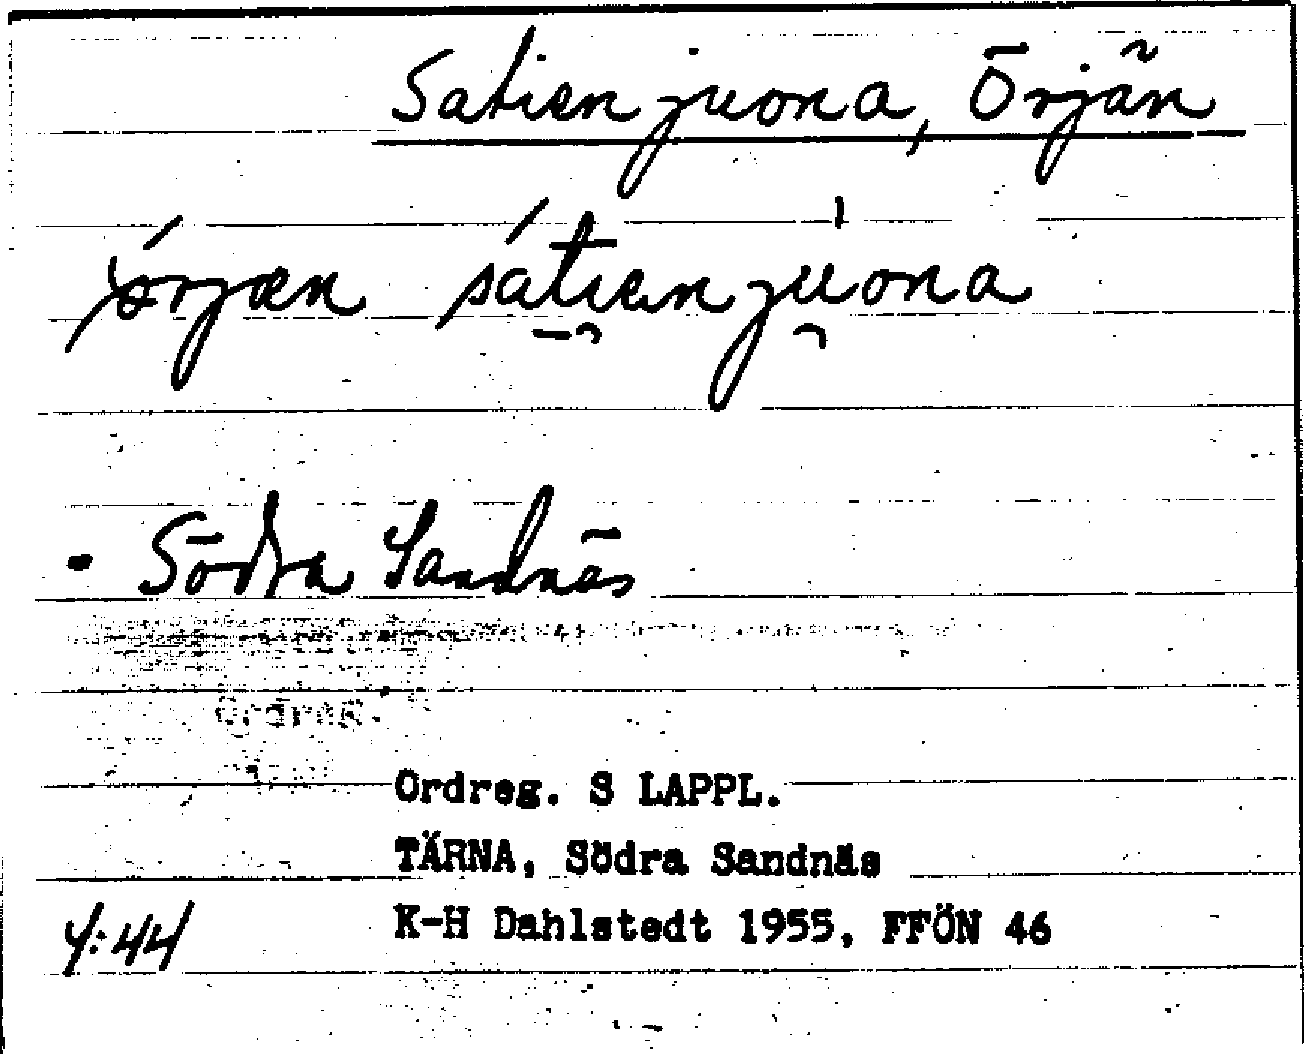 Satienjuona, Örjän
ǿrjæn sátienjùona
- Södra Sandnäs
Ordreg.
Ordreg. S LAPPL.
TÄRNA, Södra Sandnäs
K-H Dahlstedt 1955, FFÖN 46
4:44